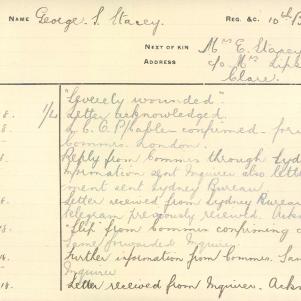 NAME George. S. Stacey. REG. &C. 10th B
NEXT OF KIN Mrs E. Stacey
ADDRESS c/o Mrs Lips
Clare.
"Severely wounded".
8. Letter acknowledged.
C.C.P/Cabled confirmed - for
Commrs. London.
8. Reply from Commrs through Syd
information sent Inquirer also lette
ment sent Sydney Bureau
8. Letter received from Sydney Bureau
telegram previously received. Ack
8. "Slip" from Commrs confirming
Same forwarded Inquirer
18. Further information from Commrs. Sam
Inquirer
18. Letter received from Inquirer. Ackn